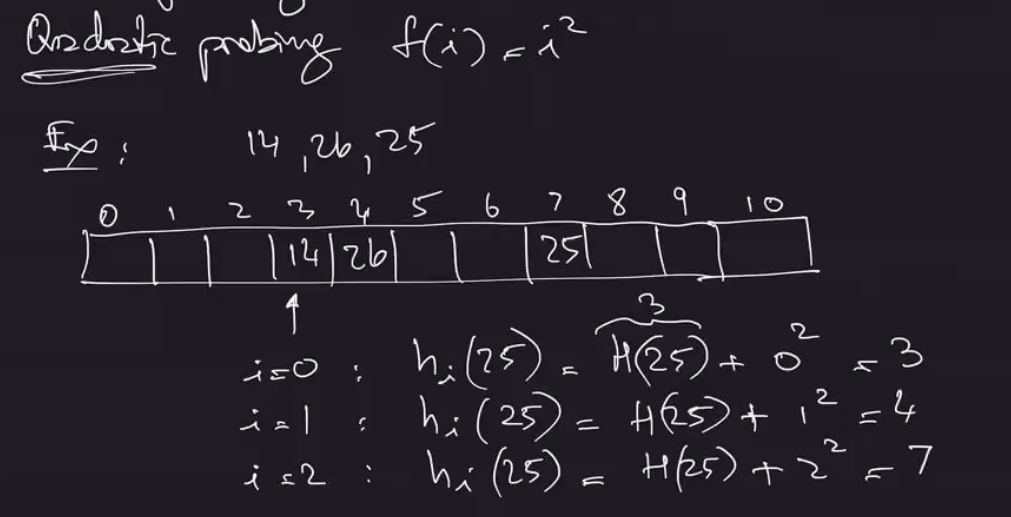 Quadratic probing f(i) = i²
Ex : 14, 26, 25
0 1 2 3 4 5 6 7 8 9 10
14 26 25
3
i=0 : hᵢ(25) = H(25) + 0² = 3
i=1 : hᵢ(25) = H(25) + 1² = 4
i=2 : hᵢ(25) = H(25) + 2² = 7